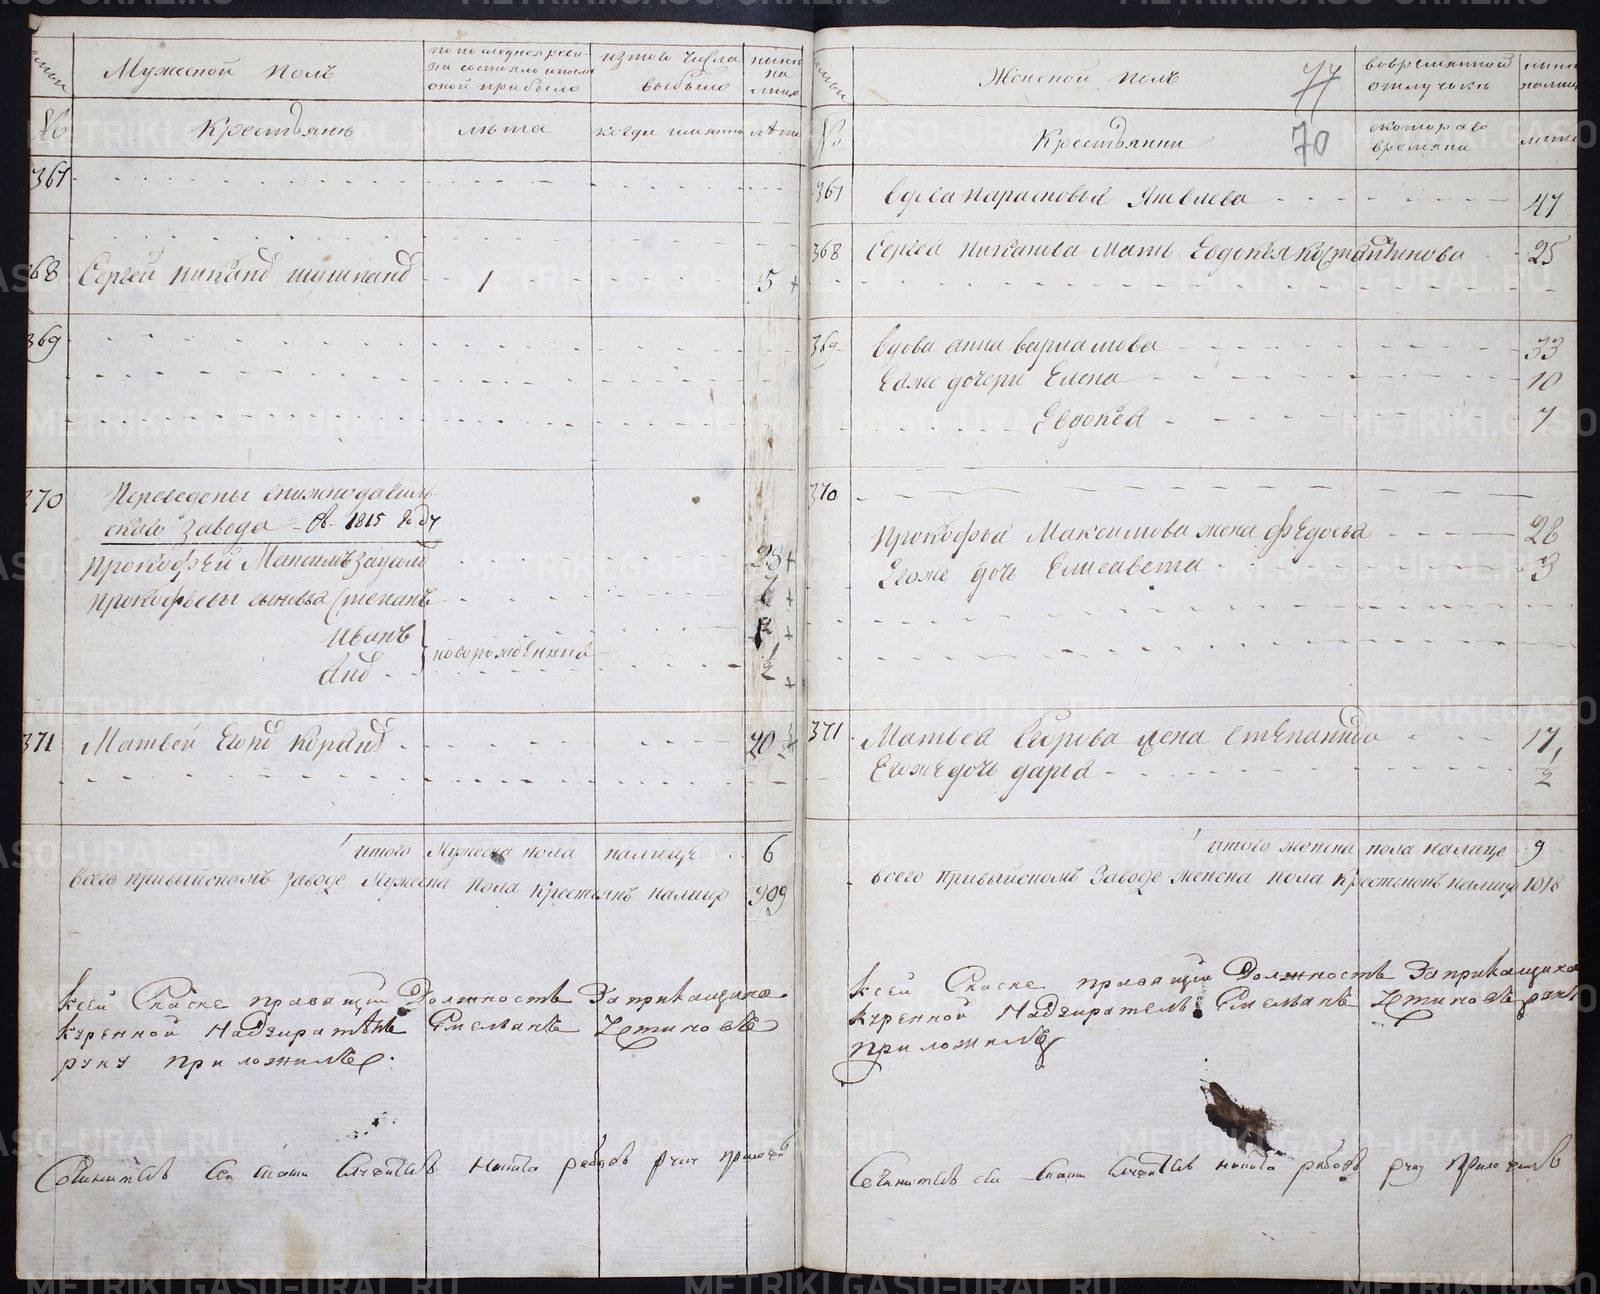 Мужеской полъ
по последней реви-
зии состояло и после
оной прибыло
изтого числа
выбыло
ныне
на
лицо
№
Крестьянъ
лета
когда имянно
лета
367
368 Сергей Никано 1 5
369
370 Переведены снижнетагиль-
скаго завода в 1815 году
Прокофей Максимъ 28
Прокофьевы сыновья Степанъ 7
Иванъ
новорожденныя
1/2
371 Матвей Егоро 20
итого мужеска пола налицо 6
всего привыйскомъ заводе мужеска пола крестьянъ налицо 909
Ксей Скаске правящий Должность Заприкащика
куренной Надзиратель Емельянъ Устиновъ
руку приложилъ
Сочинитель сей скаски Никита руку приложилъ
Женской полъ
77
вовременной
отлучки
ныне
налицо
№
Крестьянки
70
скотораго
времяни
лета
367 вдова парасковья Яковлева 47
368 Сергея Никанова мать Евдокея Костантинова 25
369 вдова анна варламова 33
Еяже дочери Елена 10
Евдокея 7
370
Прокофья Максимова жена Федосья 28
Егоже дочь Елисавета 3
371 Матвея Егорова жена Степанида 17
Егоже дочь дарья 1/2
итого женска пола налицо 9
всего привыйскомъ заводе женска пола крестьянокъ налицо 1018
Ксей Скаске правящий Должность Заприкащика
куренной Надзиратель Емельянъ Устиновъ руку
приложилъ
Сочинитель сей скаски Никита руку приложилъ
METRIKI.GASO-URAL.RU